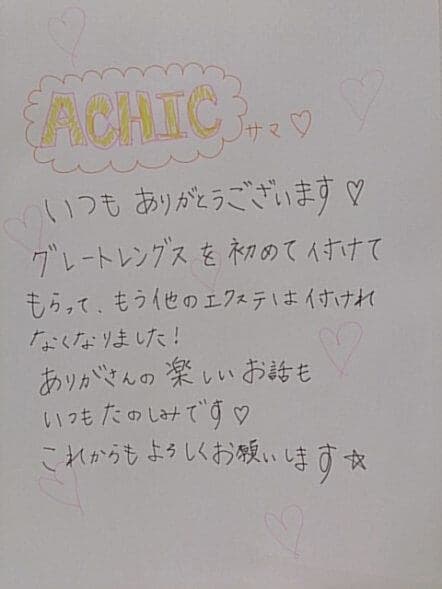 ACHIC サマ♡
いつも ありがとうございます♡
グレートレングス を 初めて 付けて
もらって、もう他のエクステは付けれ
なくなりました!
ありがさんの 楽しい お話も
いつもたのしみです♡
これからも よろしくお願いします☆